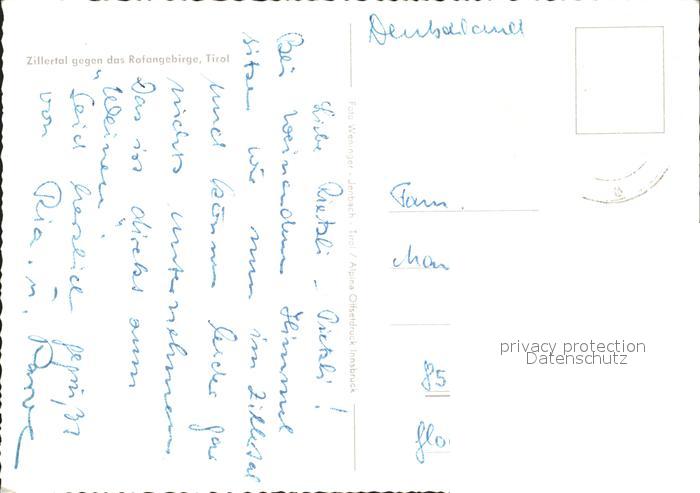 Zillertal gegen das Rofangebirge, Tirol
Liebe
Bei weinendem Himmel
sitzen wir nun im Zillertal
und können leider gar
nichts unternehmen.
Das ist direkt zum
"Weinen"
Seid herzlich gegrüßt
von Ria u.
Foto Weninger, Jenbach, Tirol / Alpina Offsetdruck Innsbruck
Deutschland
Fam.
privacy protection
Datenschutz